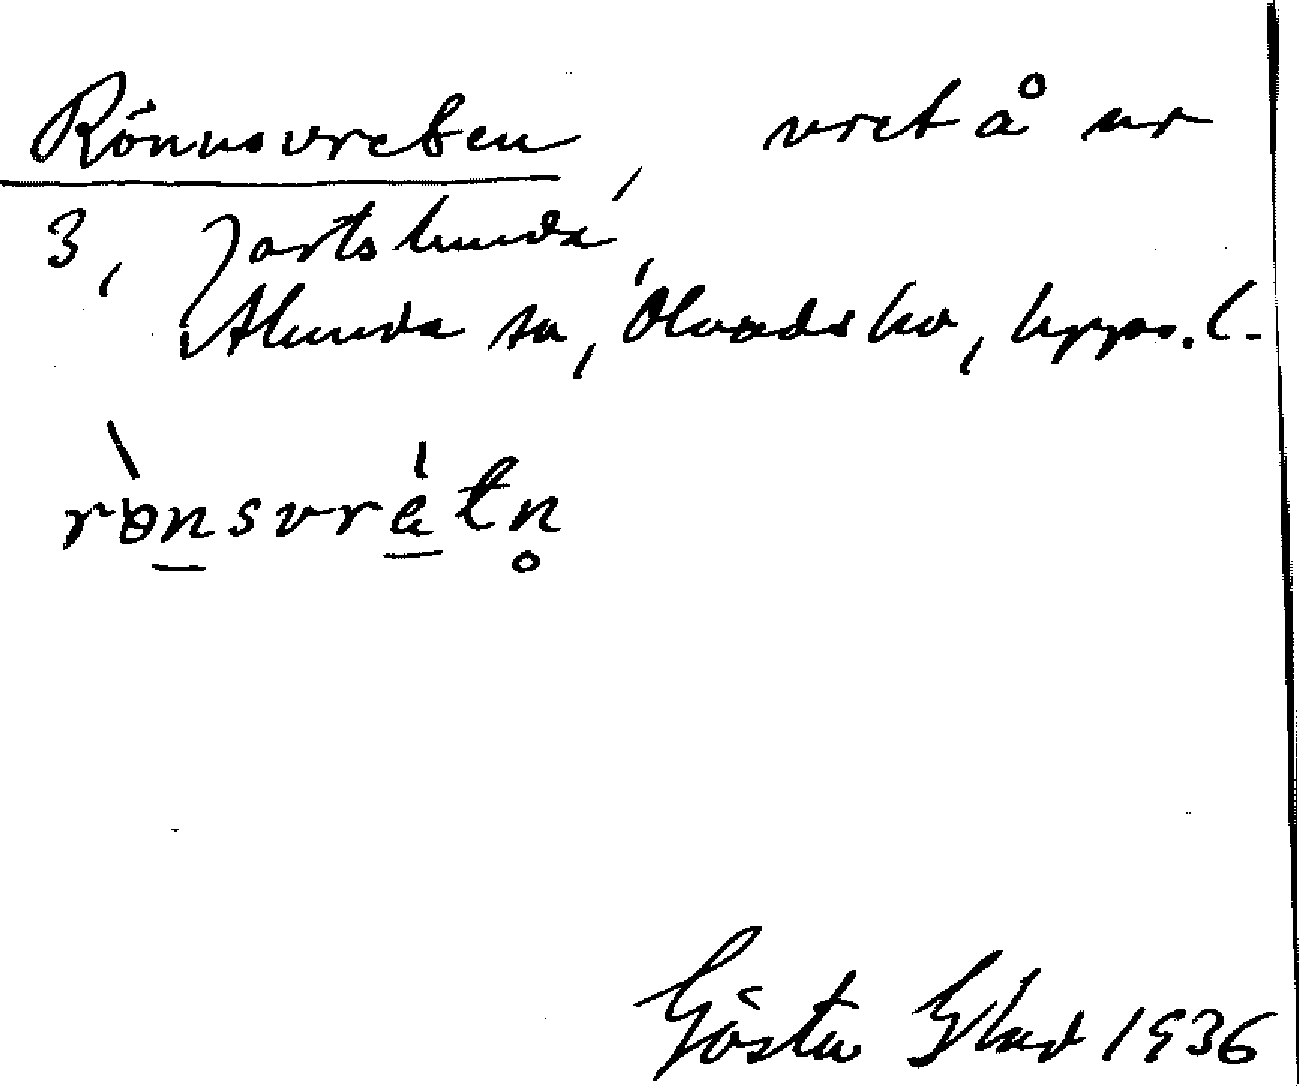 Rönnsvreten, vret å nr
3, Jortslunda,
Alunda sn, Olands hd, Upps. l.
rɵnsvrètn̥
Gösta Eklund 1936